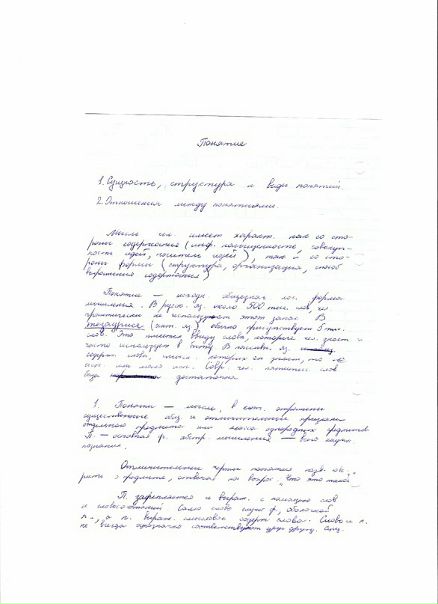 Понятие
1. Сущность, структура и виды понятий
2. Отношения между понятиями.
Мысль чел. имеет характ. как со сто-
роны содержания (инф. насыщенность, совокуп-
ность идей, носитель идей), так и со сто-
роны формы (структура, организация, способ
выражения содержания)
Понятие — исходн. лог. форма
мышления. В русск. яз. около 500 тыс. слов, чел.
практически не использует этот запас. В
обычно присутствует 5 тыс.
слов. Это пласт слова, которые чел. знает и
часто использует в быту. В пассивн. яз.
содерж. слова, смысл которых он знает, но не
или мало исп. Совр. чел. слов
достаточно.
1. Понятие — мысль, в кот. отражены
существенные общ. и отличительные признаки
отдельного предмета или класса однородных предметов
П. — основная ф. абстр. мышления — всего научн.
познания.
Отличительные черты понятия
о предмете, отвечая на вопрос „Что это такое
П. закрепляется и выраж. с помощью слов
и словосочетаний. Само слово оболочкой
п., а п. выраж. смысловое содерж. слова. Слово и п.
не всегда однозначно соответствуют друг другу.